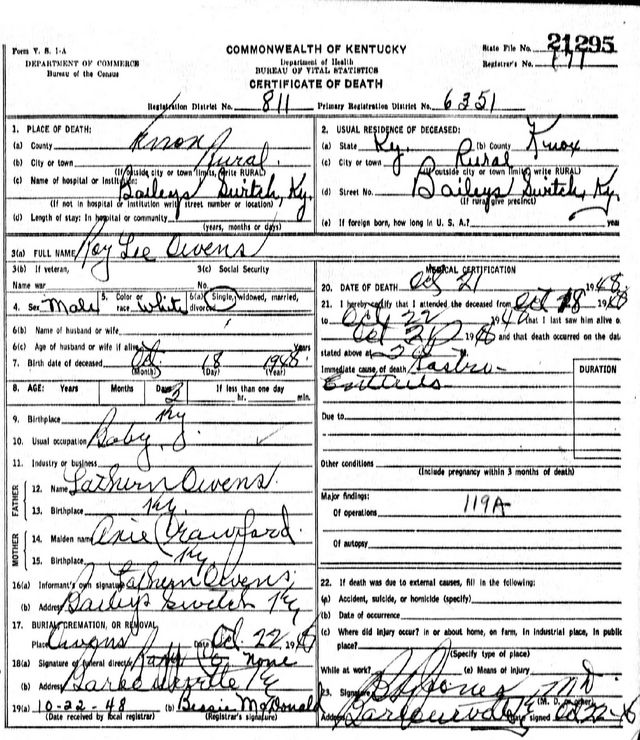 Form V. S. 1-A
DEPARTMENT OF COMMERCE
Bureau of the Census
COMMONWEALTH OF KENTUCKY
Department of Health
BUREAU OF VITAL STATISTICS
CERTIFICATE OF DEATH
State File No. 21295
Registrar's No.
Registration District No. 811 Primary Registration District No. 6351
1. PLACE OF DEATH:
(a) County Knox
(b) City or town Rural
(If outside city or town limits, write RURAL)
(c) Name of hospital or institution: Baileys Switch, Ky.
(If not in hospital or institution write street number or location)
(d) Length of stay: In hospital or community
(years, months or days)
2. USUAL RESIDENCE OF DECEASED:
(a) State Ky. (b) County Knox
(c) City or town Rural
(If outside city or town limits, write RURAL)
(d) Street No. Baileys Switch, Ky.
(If rural give precinct)
(e) If foreign born, how long in U. S. A.? years
3(a) FULL NAME Roy Lee Owens
3(b) If veteran, 3(c) Social Security
Name war No.
4. Sex Male 5. Color or race White 6(a) Single, widowed, married, divorced
6(b) Name of husband or wife
6(c) Age of husband or wife if alive
7. Birth date of deceased Oct. 18 1948
(Month) (Day) (Year)
8. AGE: Years Months Days 3 If less than one day
hr. min.
9. Birthplace Ky
10. Usual occupation Baby
11. Industry or business
FATHER
12. Name Lathern Owens
13. Birthplace Ky.
MOTHER
14. Maiden name Axie Crawford
15. Birthplace Ky
16(a) Informant's own signature Lathern Owens
(b) Address Baileys Switch Ky
17. BURIAL, CREMATION, OR REMOVAL
Place Owens Date Oct. 22 1948
18(a) Signature of funeral director None
(b) Address Barbourville Ky
19(a) 10-22-48 (b) Bessie McDonald
(Date received by local registrar) (Registrar's signature)
MEDICAL CERTIFICATION
20. DATE OF DEATH Oct 21 1948
21. I hereby certify that I attended the deceased from Oct 18 1948
to Oct 22 1948 that I last saw him alive on
Oct 21 1948 and that death occurred on the date
stated above at
Immediate cause of death Gastro-
Enteritis
DURATION
Due to
Other conditions
(Include pregnancy within 3 months of death)
Major findings:
Of operations 119A
Of autopsy
22. If death was due to external causes, fill in the following:
(a) Accident, suicide, or homicide (specify)
(b) Date of occurrence
(c) Where did injury occur? in or about home, on farm, in industrial place, in public
place?
(Specify type of place)
While at work? (e) Means of injury
23. Signature Jones MD
(M. D. or other)
Address Barbourville Ky Date signed Oct 22-48